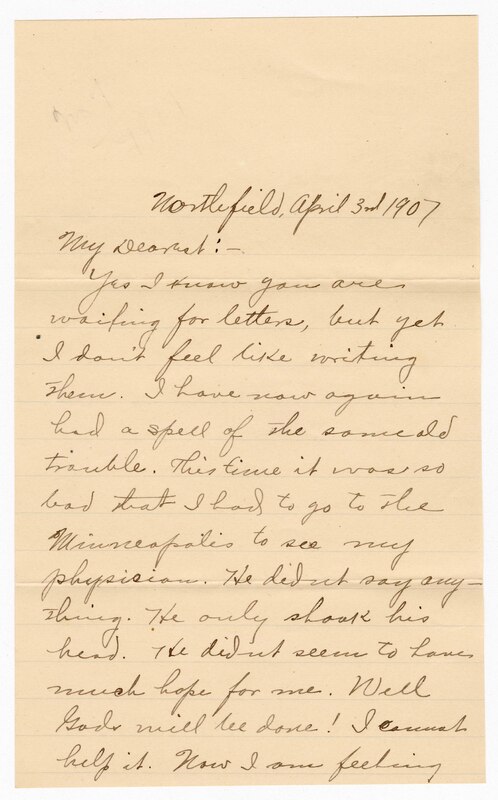 Northfield, April 3rd 1907
My Dearest:-
Yes I know you are
waiting for letters, but yet
I don't feel like writing
them. I have now again
had a spell of the same old
trouble. This time it was so
bad that I had to go to the
Minneapolis to see my
physician. He didn't say any-
thing. He only shook his
head. He didn't seem to have
much hope for me. Well
Gods will be done! I cannot
help it. Now I am feeling